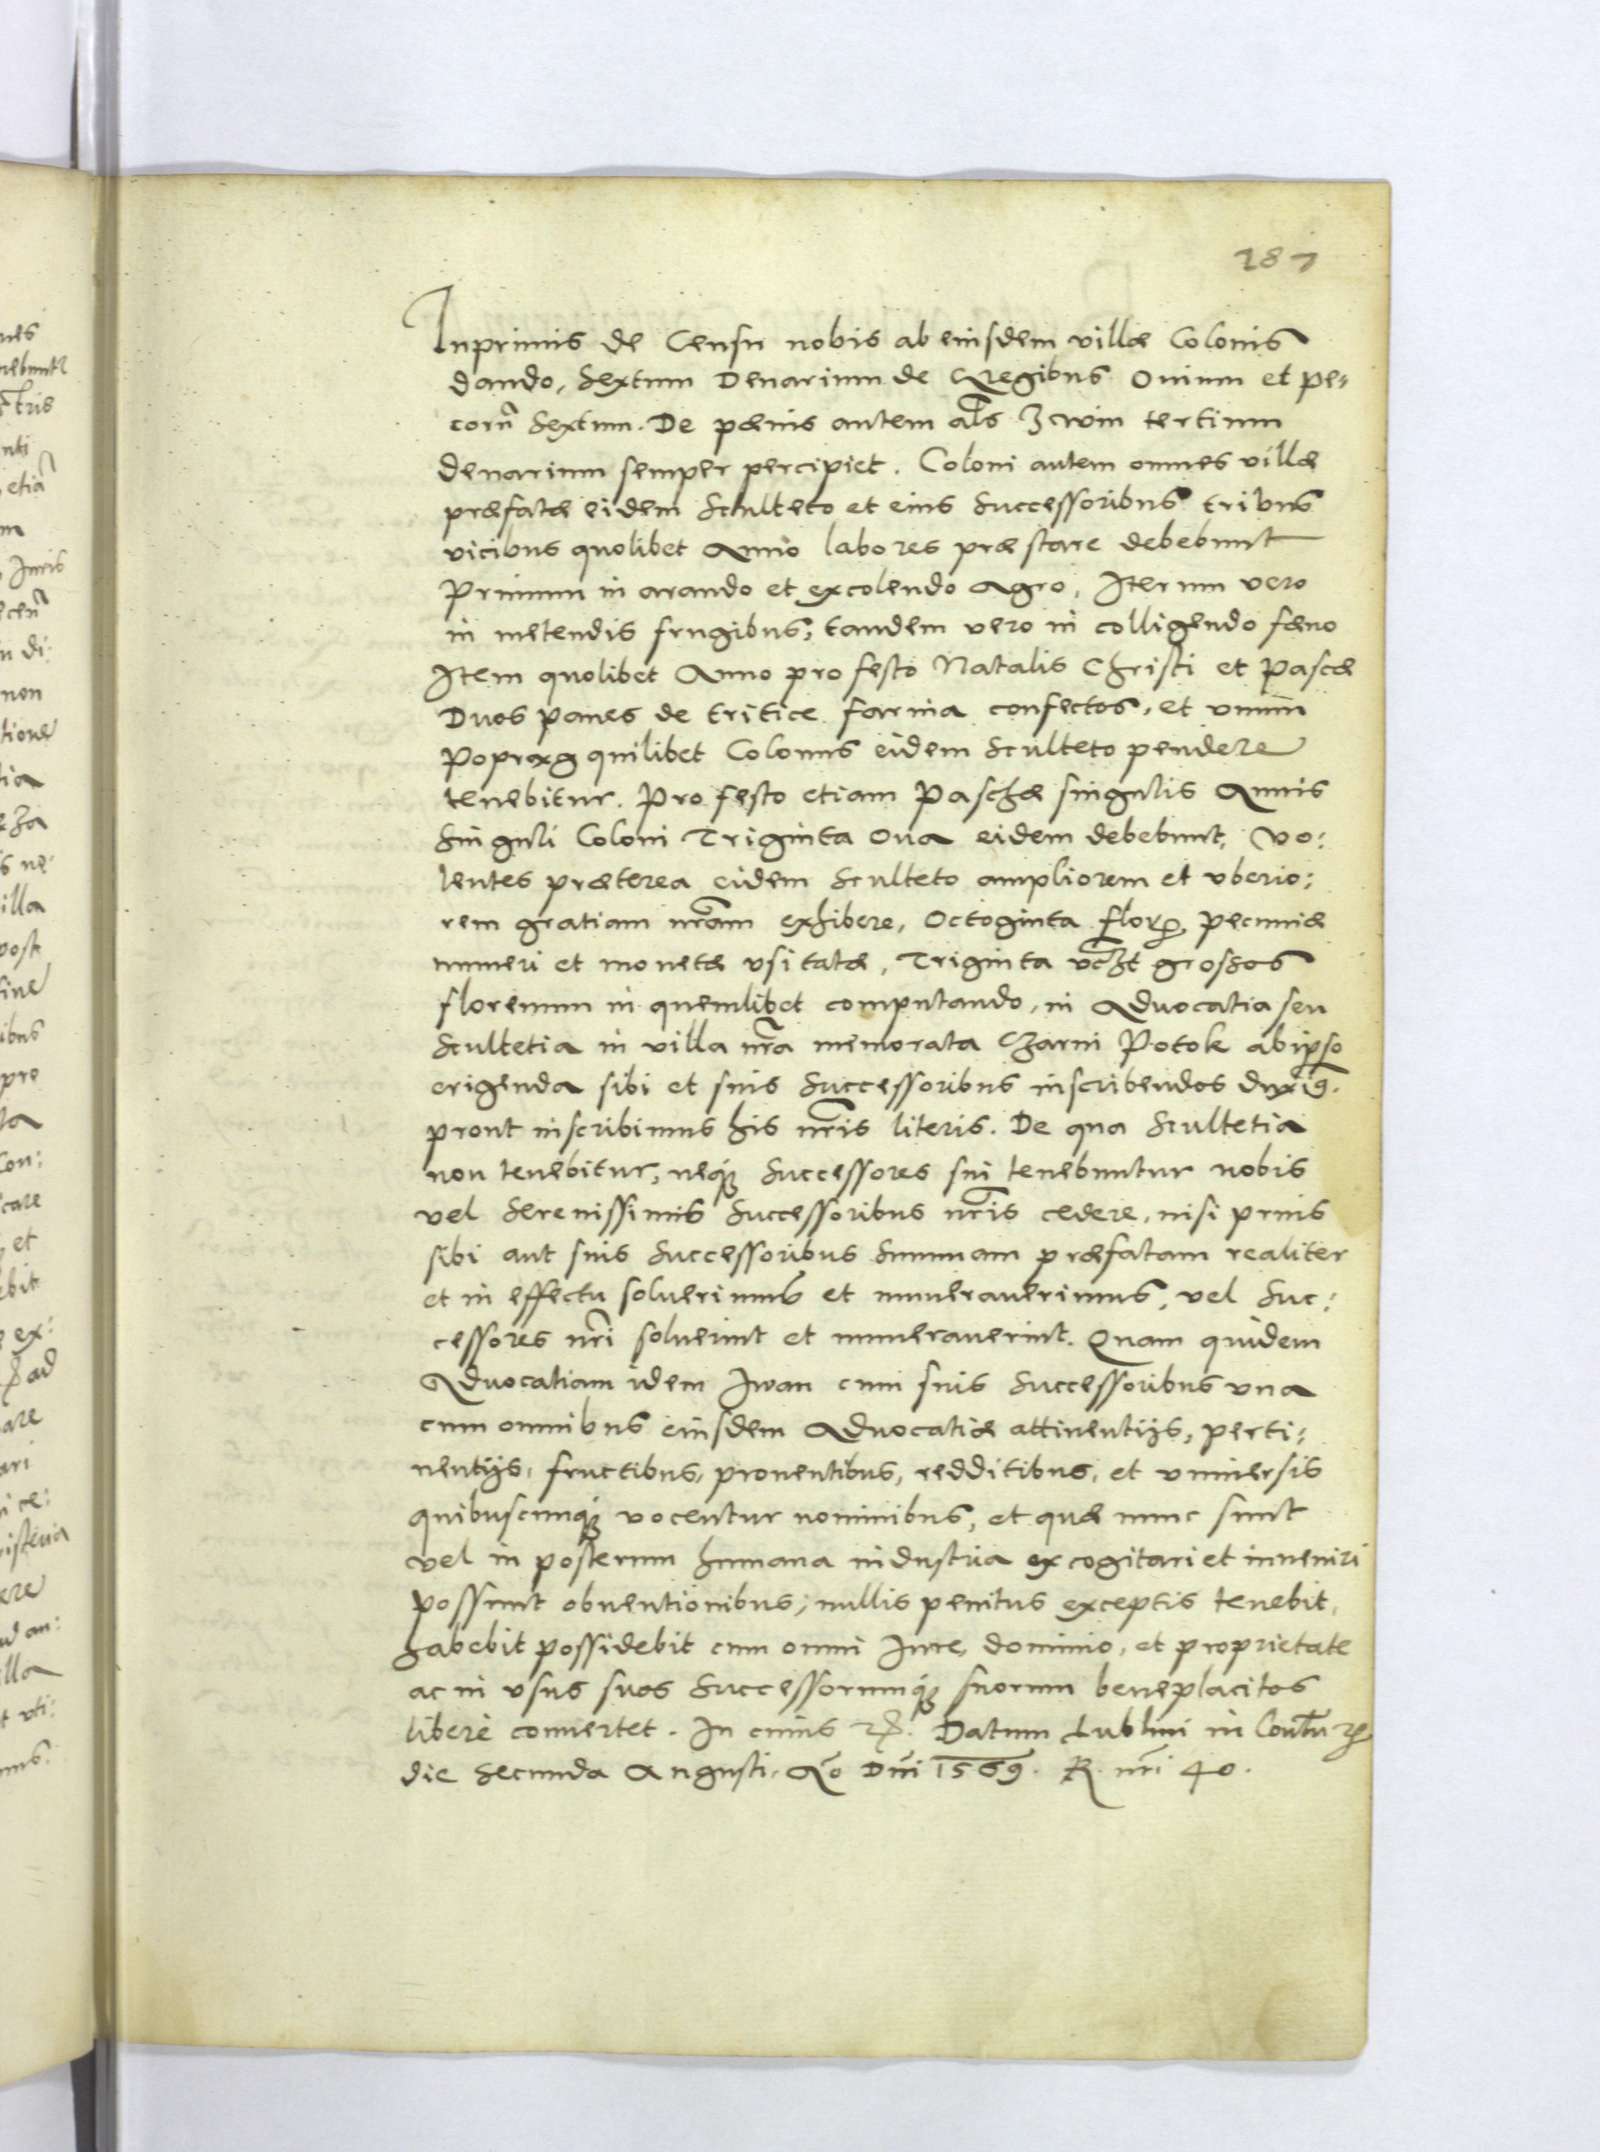 187
Inprimis de Censu nobis ab eiusdem villæ Colonis
dando, Sextum Denarium de Gregibus Ovium et pe-
corũ Sextum. De pænis autem als Zwin tertium
denarium semper percipiet. Coloni autem omnes villæ
præfatæ eidem Sculteto et eius Successoribus tribus
vicibus quolibet Anno labores præstare debebunt
Primum in arando et excolendo Agro, Iterum vero
in metendis frugibus, tandem vero in colligendo fæno
Item quolibet Anno pro festo Natalis Christi et Pascæ
Duos panes de tritice farina confectos, et unum
quilibet Colonus eidem Sculteto pendere
tenebitur. Pro festo etiam Paschæ singulis Annis
Singuli Coloni Triginta Ova eidem debebunt, Vo:
lentes præterea eidem Sculteto ampliorem et uberio:
rem gratiam nram exhibere, Octoginta flor, pecuniæ
numeri et monetæ usitatæ, Triginta vczt grossos
florenum in quemlibet computando, in Advocatia seu
Scultetia in villa nra memorata Czarni Potok ab ipso
erigenda sibi et suis Successoribus inscribendos duxim9.
prout inscribimus his nris literis. De qua Scultetia
non tenebitur, neq Successores sui tenebuntur nobis
vel Serenissimis Successoribus nris cedere, nisi prius
sibi aut suis Successoribus Summam præfatam realiter
et in effectu soluerimus et numerauerimus, vel Suc:
cessores nri soluerint et numerauerint. Quam quidem
Aduocatiam idem Iwan cum suis Successoribus una
cum omnibus eiusdem Aduocatiæ attinentijs, perti:
nentijs, fructibus, prouentibus, redditibus, et uniuersis
quibuscunq vocentur nominibus, et quæ nunc sunt
vel in posterum humana industria excogitari et inueniri
possunt obuentionibus, nullis penitus exceptis tenebit,
habebit possidebit cum omni Iure, dominio, et proprietate
ac in usus suos Successorumq suorum beneplacitos
liberè conuertet. In cuius rei. Datum Lublini in Contu
die Secunda Augusti, Ao Dni 1569. R. nri 40.